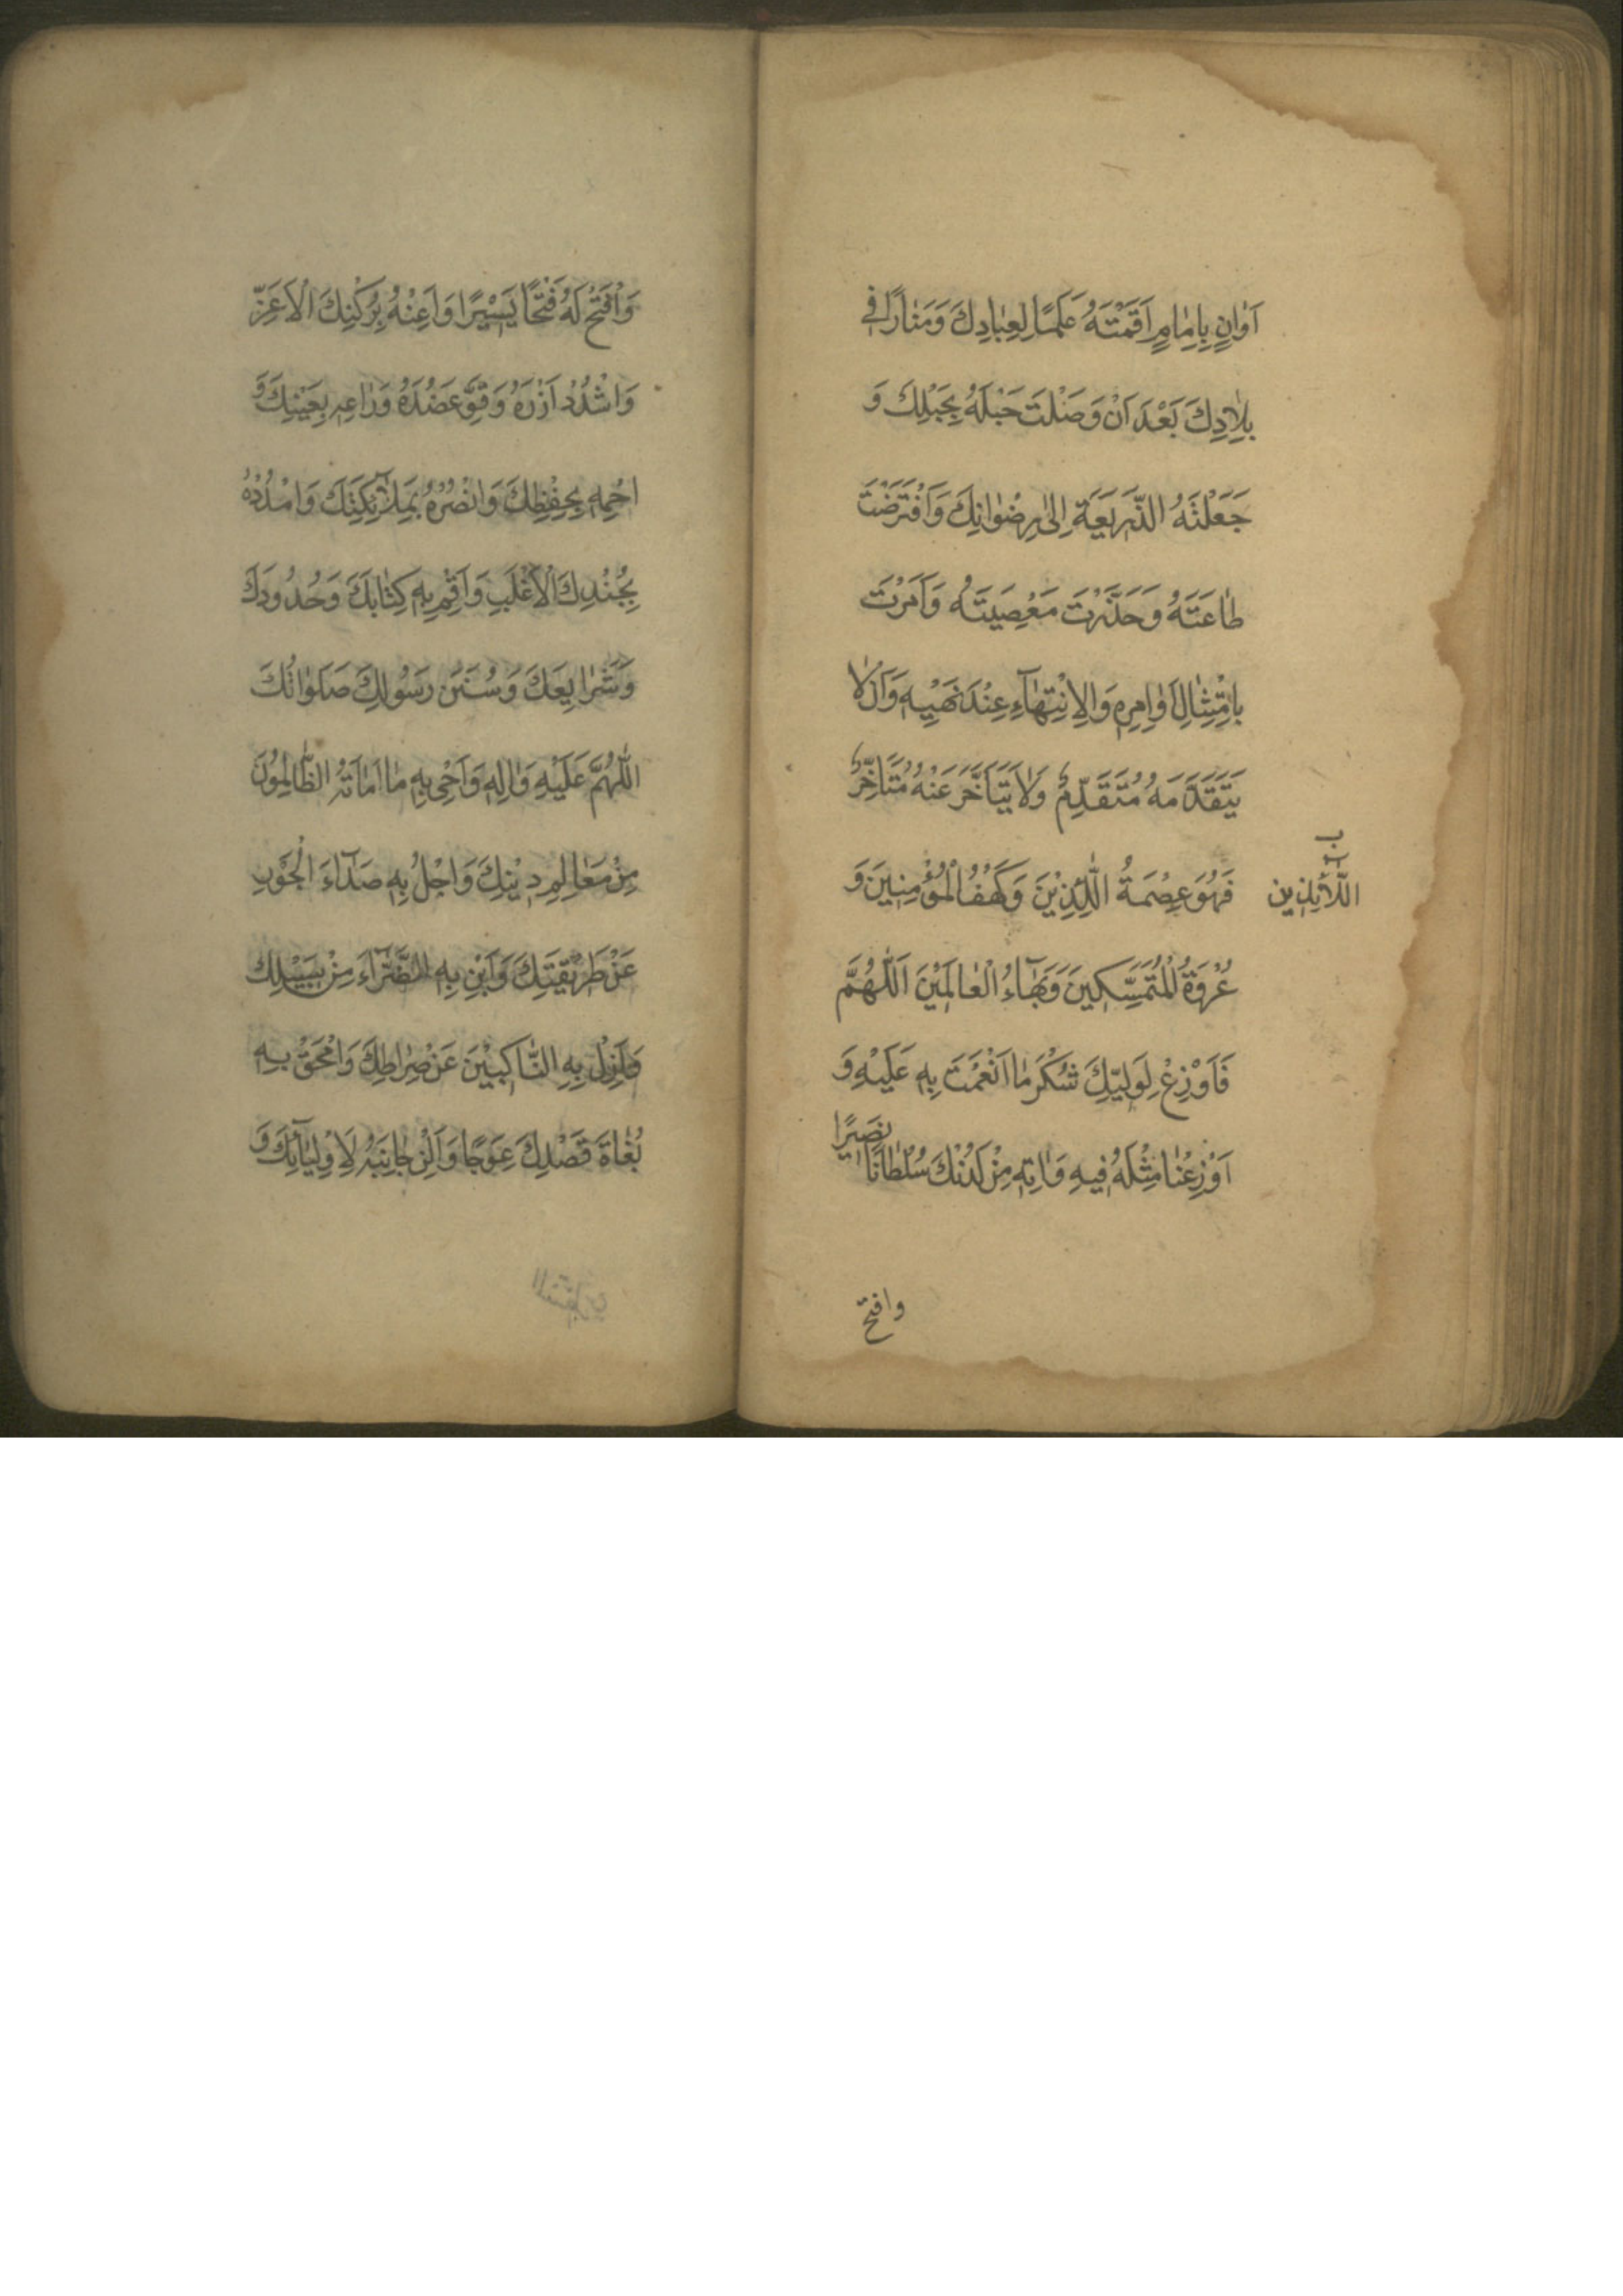 اَوٰانٍ بِاِمٰامٍ اَقَمْتَهُ عَلَمًا لِعِبٰادِكَ وَمَنٰارًا فِي
بِلٰادِكَ بَعْدَ اَنْ وَصَلْتَ حَبْلَهُ بِحَبْلِكَ وَ
جَعَلْتَهُ الذَّرِيعَةِ اِلىٰ رِضْوٰانِكَ وَافْتَرَضْتَ
طٰاعَتَهُ وَحَذَّرْتَ مَعْصِيَتَهُ وَاَمَرْتَ
بِامْتِثٰالِ اَوٰامِرِهِ وَالِانْتِهٰآءِ عِنْدَ نَهْيِهِ وَاَلّٰا
يَتَقَدَّمَهُ مُتَقَدِّمٌ وَلٰا يَتَاَخَّرَ عَنْهُ مُتَاَخِّرٌ
فَهُوَ عِصْمَةُ اللّٰئِذِيْنَ وَكَهْفُ الْمُؤْمِنِينَ وَ
ب
اللّٰآئِذِين
عُرْوَةُ الْمُتَمَسِّكِينَ وَبَهٰآءُ الْعٰالَمِيْنَ اَللّٰهُمَّ
فَاَوْزِعْ لِوَلِيِّكَ شُكْرَ مٰا اَنْعَمْتَ بِهِ عَلَيْهِ وَ
اَوْزِعْنٰا مِثْلَهُ فِيهِ وَاٰتِهِ مِنْ لَدُنْكَ سُلْطٰانًا نَصِيرًا
وافتح
وَافْتَحْ لَهُ فَتْحًا يَسْيِرًا وَاَعِنْهُ بِرُكْنِكَ الْاَعَزِّ
وَاشْدُدْ اَزْرَهُ وَقَوِّ عَضُدَهُ وَرٰاعِهِ بِعَيْنِكَ وَ
احْمِهِ بِحِفْظِكَ وَانْصُرْهُ بِمَلٰآئِكَتِكَ وَامْدُدْهُ
بِجُنْدِكَ الْاَغْلَبِ وَاَقِمْ بِهِ كِتٰابَكَ وَحُدُودَكَ
وَشَرٰايِعَكَ وَسُنَنَ رَسُولِكَ صَلَوٰاتُكَ
اللّٰهُمَّ عَلَيْهِ وَاٰلِهِ وَاَحْيِ بِهِ مٰا اَمٰاتَهُ الظّٰالِمُونَ
مِنْ مَعٰالِمِ دِيْنِكَ وَاجْلُ بِهِ صَدٰٓاءَ الْجَوْرِ
عَنْ طَرِيقَتِكَ وَاَبِنْ بِهِ الضَّرّٰآءَ مِنْ سَبِيْلِكَ
وَاَزِلْ بِهِ النّٰاكِبِيْنَ عَنْ صِرٰاطِكَ وَامْحَقْ بِهِ
بُغٰاةَ قَصْدِكَ عِوَجًا وَاَلِنْ جٰانِبَهُ لِاَوْلِيٰآئِكَ وَ